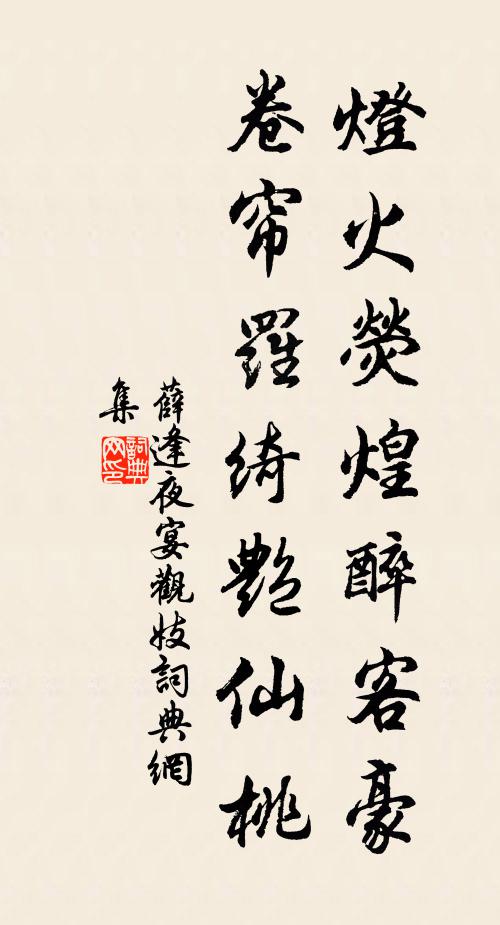 燈火熒煌醉客豪
卷帘羅綺艷仙桃
薛逢夜宴觀妓詞典網
集
詞典
网印